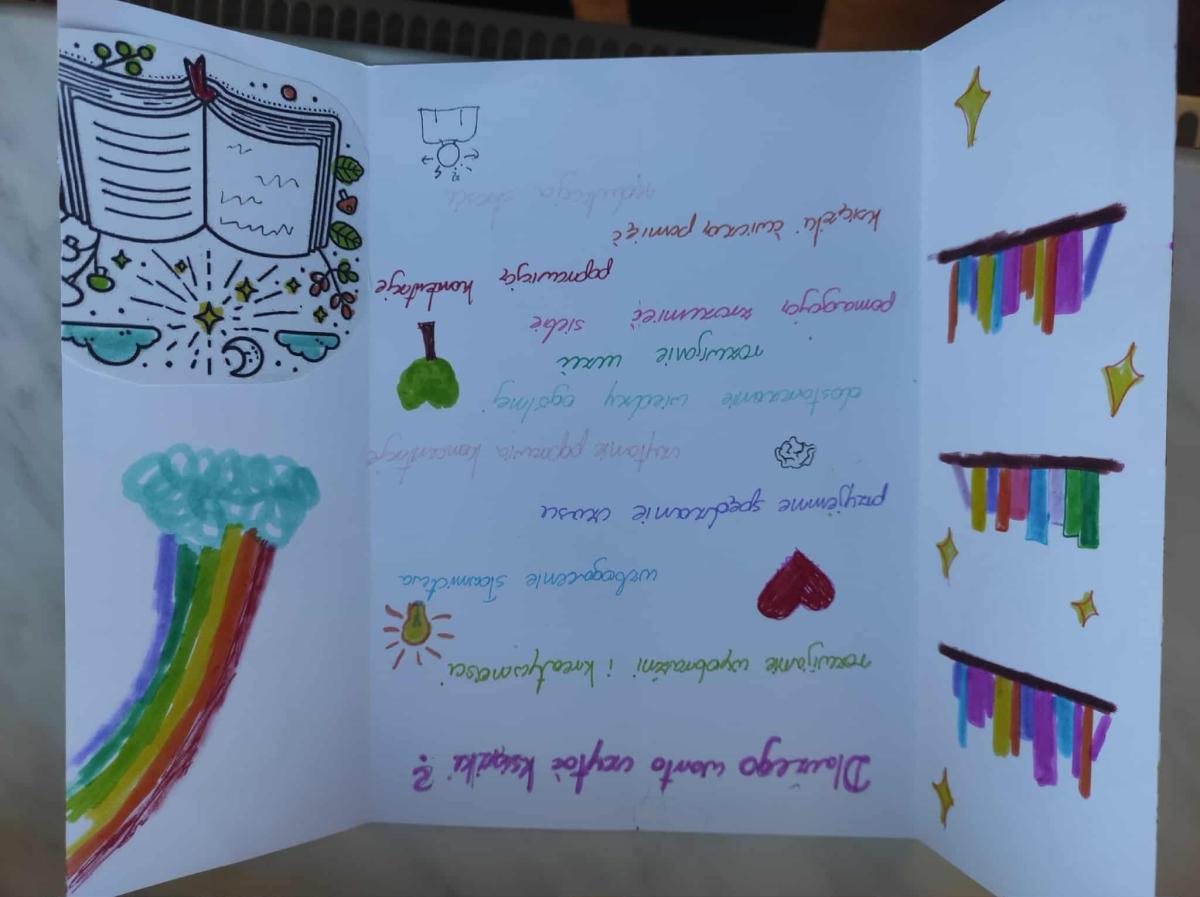 Dlaczego warto czytać książki?
rozwijanie wyobraźni i kreatywności
wzbogacenie słownictwa
przyjemne spędzanie czasu
czytanie poprawia koncentrację
dostarczanie wiedzy ogólnej
rozwijanie uczuć
pomagają zrozumieć siebie
poprawiają
książki ćwiczą pamięć
redukcja stresu